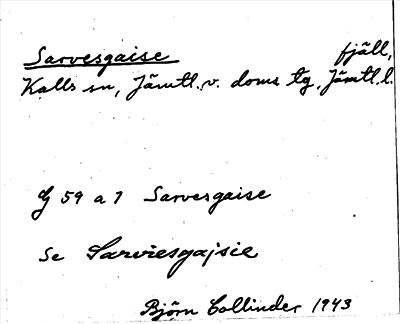 Sarvesgaise fjäll,
Kalls sn, Jämtl. v. doms tg, Jämtl. l.
G 59 a 7 Sarvesgaise
Se Sarviesgajsie
Björn Collinder 1943